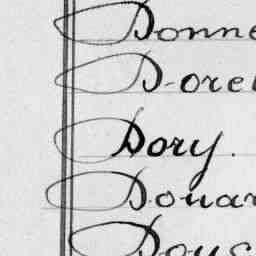 Donne
Dorel
Dory.
Douar
Douc